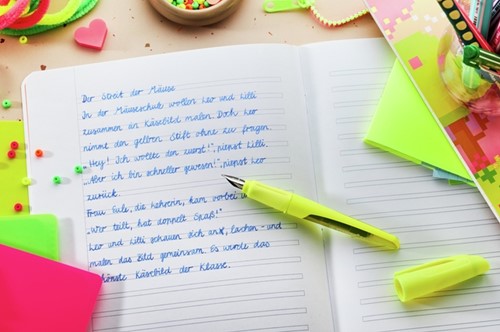 Der Streit der Mäuse
In der Mäuseschule wollen Leo und Lilli
zusammen ein Käsebild malen. Doch Leo
nimmt den gelben Stift ohne zu fragen.
„Hey! Ich wollte den zuerst!", piepst Lilli.
„Aber ich bin schneller gewesen!", piepst Leo
zurück.
Frau Eule, die Lehrerin, kam vorbei
„Wer teilt, hat doppelt Spaß!"
Leo und Lilli schauen sich an, lachen und
malen das Bild gemeinsam. Es werde das
schönste Käsebild der Klasse.